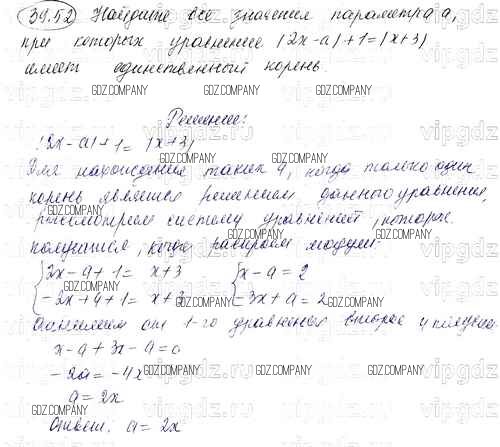 39.52 Найдите все значения параметра a,
при которых уравнение |2x-a|+1=|x+3|
имеет единственный корень.
GDZ.COMPANY GDZ.COMPANY GDZ.COMPANY
Решение:
|2x-a|+1=|x+3|
GDZ.COMPANY GDZ.COMPANY GDZ.COMPANY
Для нахождения таких a, когда только один
корень является решением данного уравнения,
рассмотрим систему уравнений, которое
получится, когда раскроем модули:
GDZ.COMPANY GDZ.COMPANY GDZ.COMPANY
2x-a+1= x+3 x-a=2
-2x+a+1= x+3 -3x+a=2
GDZ.COMPANY GDZ.COMPANY GDZ.COMPANY
от 1-го уравнения второе и
x-a+3x-a=0
-2a=-4x
GDZ.COMPANY GDZ.COMPANY GDZ.COMPANY
a=2x
GDZ.COMPANY GDZ.COMPANY GDZ.COMPANY
Ответ: a=2x